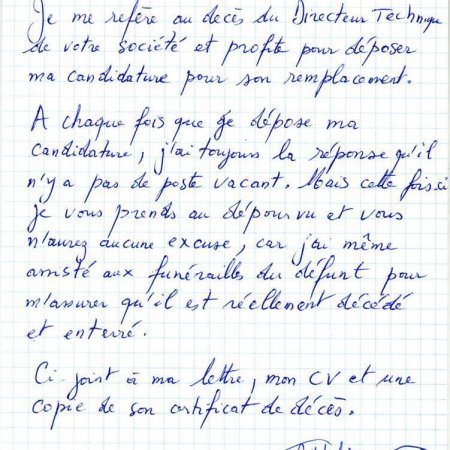 Je me refère au decès du Directeur Technique
de votre société et profite pour déposer
ma candidature pour son remplacement.
A chaque fois que je dépose ma
candidature, j'ai toujours la réponse qu'il
n'y a pas de poste vacant. Mais cette fois.ci
je vous prends au dépourvu et vous
n'aurez aucune excuse, car j'ai même
assisté aux funérailles du défunt pour
m'assurer qu'il est réellement décédé
et enterré.
Ci-joint à ma lettre, mon CV et une
copie de son certificat de décès.